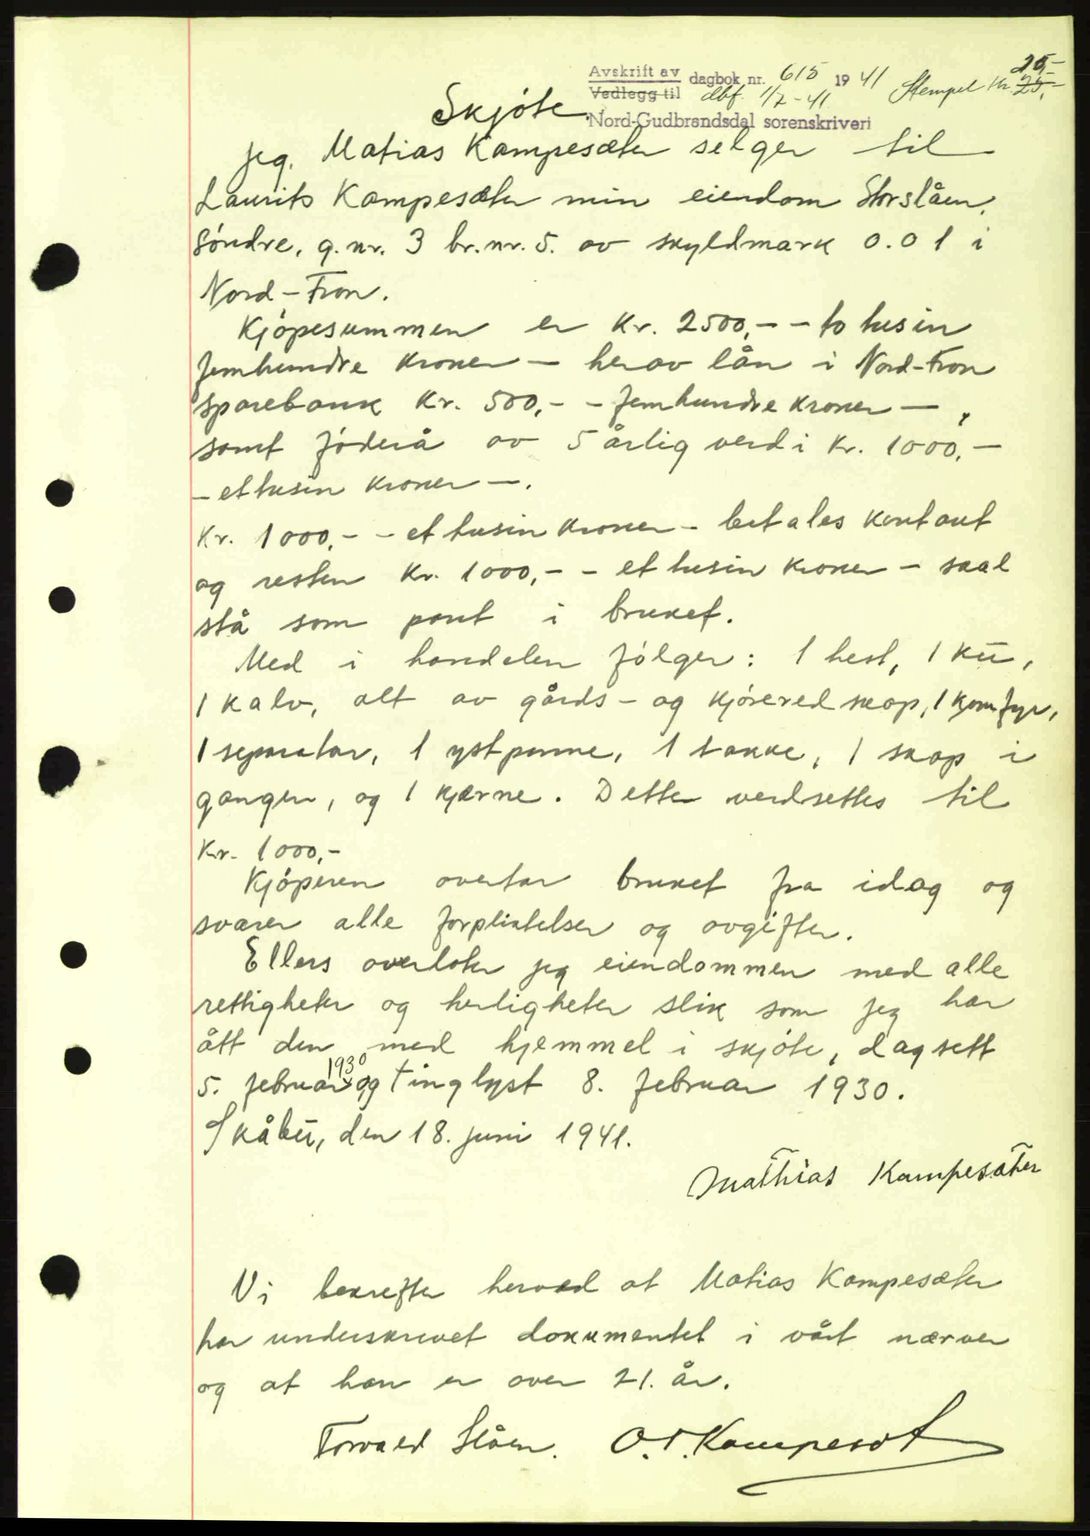 Avskrift av dagbok nr. 615 1941 Stempel kr. 25,-
25,-
Vedlegg til dbf. 1/7-41
Nord-Gudbrandsdal sorenskriveri
Skjöte.
Jeg, Matias Kampesæter selger til
Laurits Kampesæter min eiendom Storslåen,
söndre, g.nr. 3 br.nr. 5. av skyldmark 0.01 i
Nord-Fron.
Kjöpesummen er kr. 2500,- - to tusin
femhundre kroner - herav lån i Nord-Fron
sparebank kr. 500,- - femhundre kroner -,
samt föderå av 5 årlig verdi kr. 1000,-
- et tusin kroner -.
Kr. 1000,- - et tusin kroner - betales kontant
og resten kr. 1000,- - et tusin kroner - skal
stå som pant i bruket.
Med i handelen fölger: 1 hest, 1 ku,
1 kalv, alt av gårds- og kjöreredskap, 1 komfyr,
1 separator, 1 ystpanne, 1 takke, 1 skap i
gangen, og 1 kjærne. Dette verdsettes til
Kr. 1000,-
Kjöperen overtar bruket fra idag og
svarer alle forpliktelser og avgifter.
Ellers overlater jeg eiendommen med alle
rettigheter og herligheter slik som jeg har
ått den med hjemmel i skjöte, dagsett
5. februar 1930 og tinglyst 8. februar 1930.
Skåbu, den 18. juni 1941.
Mathias Kampesæter
Vi bekrefter herved at Matias Kampesæter
har underskrevet dokumentet i vårt nærver
og at han er over 21. år.
Torvald Slåen. O. T. Kampesæt